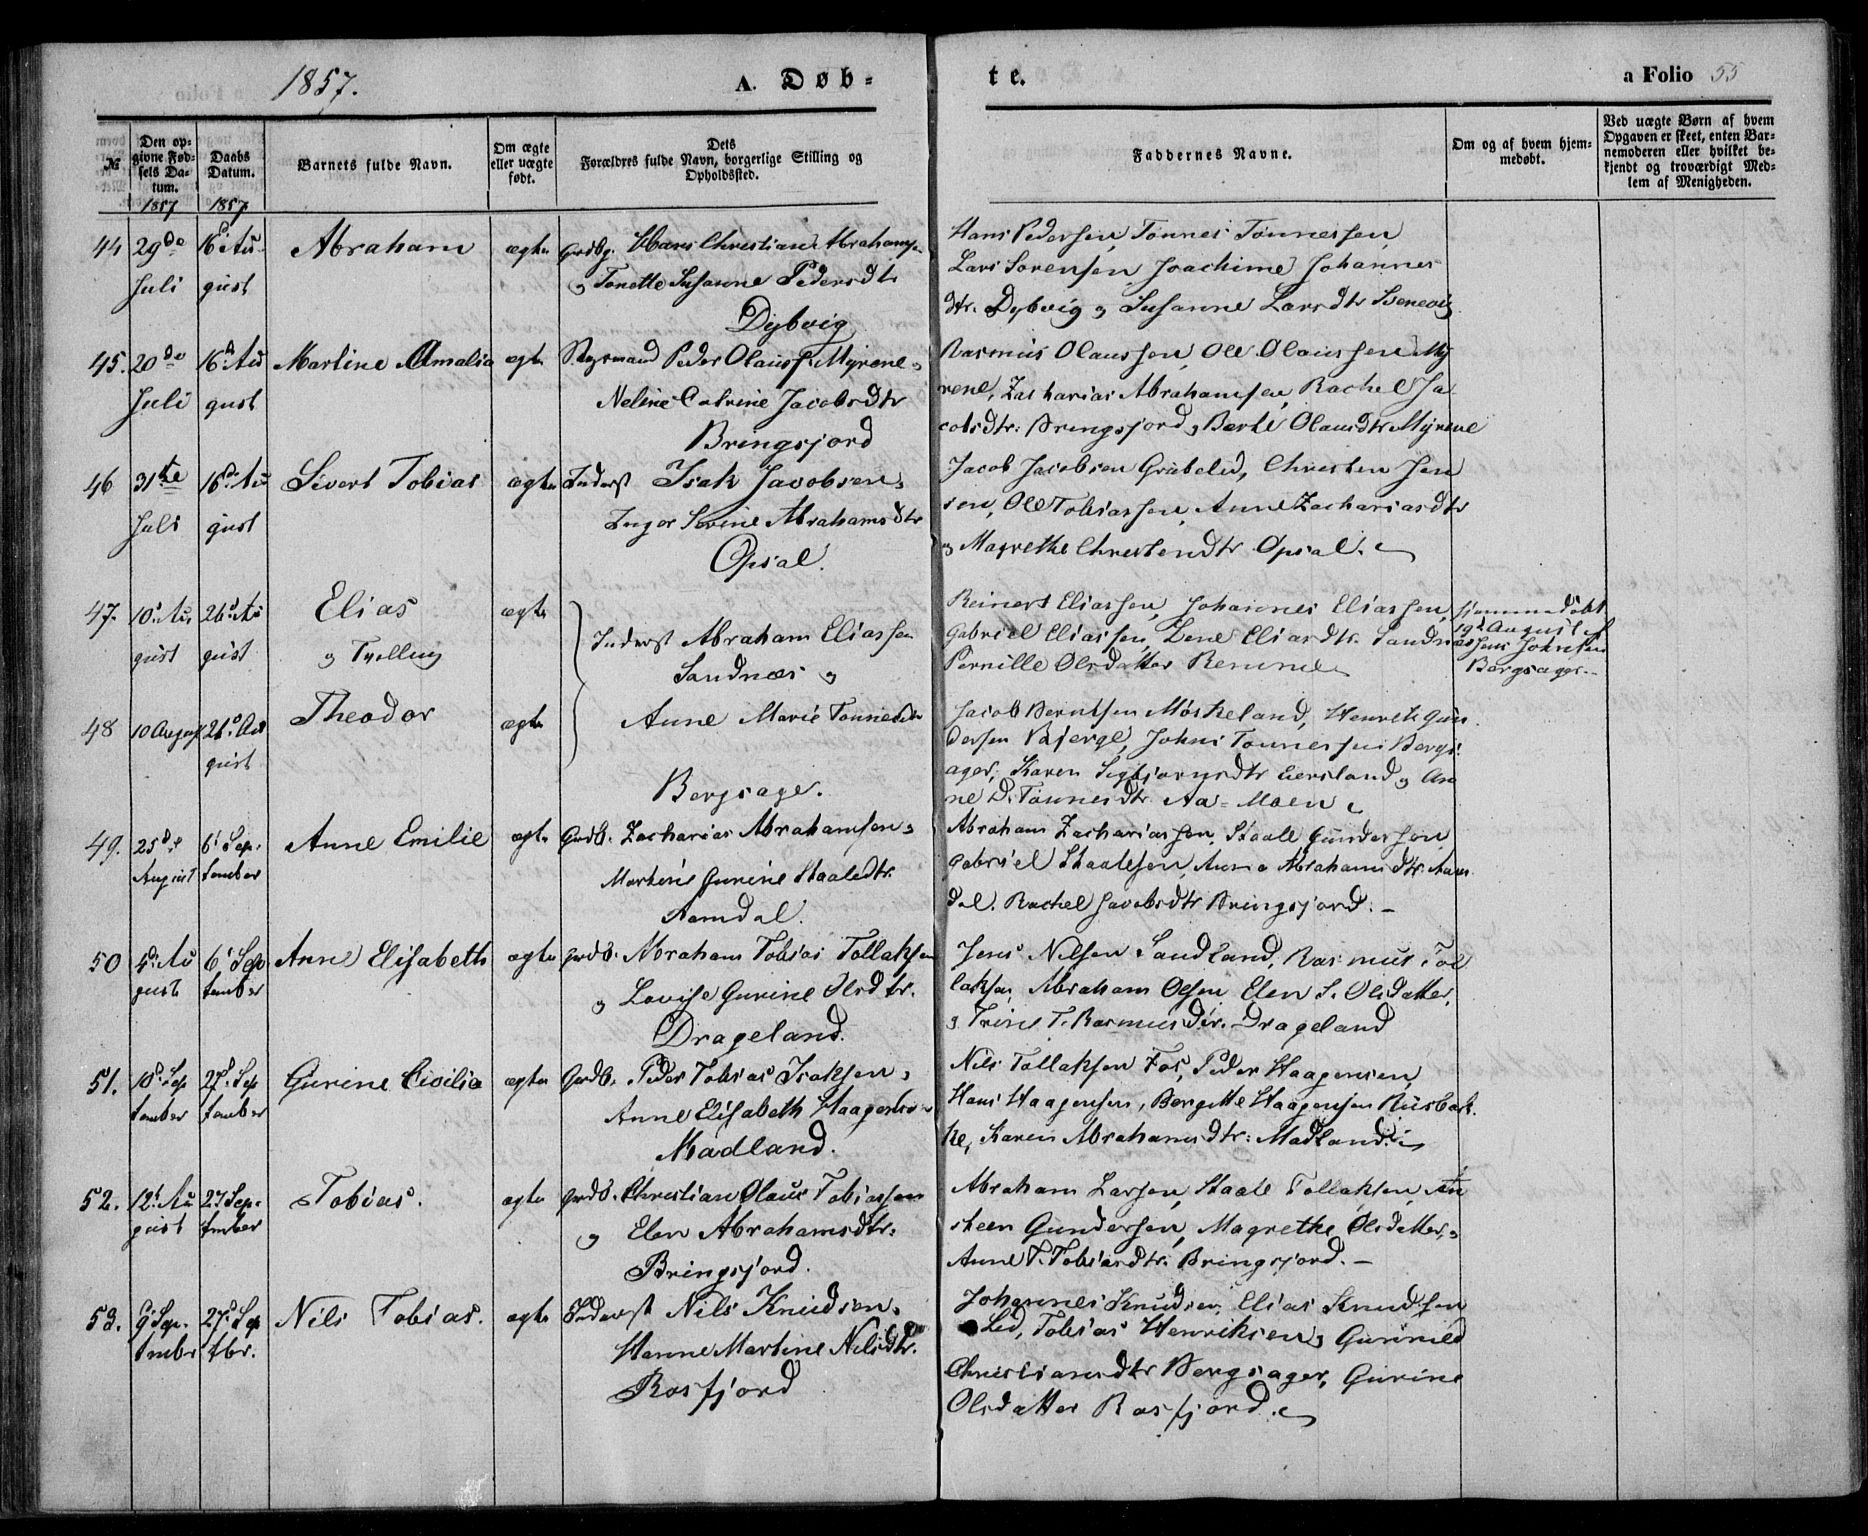 1857. A. Døb-
te. a Folio 55
№
Den opgivne Fødsels Datum.
1857
Daabs Datum.
1857
Barnets fulde Navn.
Om ægte eller uægte født.
Dets Forældres fulde Navn, borgerlige Stilling og Opholdssted.
Faddernes Navne.
Om og af hvem hjemmedøbt.
Ved uægte Børn af hvem Opgaven er skeet, enten Barnemoderen eller hvilket bekjendt og troværdigt Medlem af Menigheden.
44 29de Juli 16d August Abraham ægte Grdbg. Hans Christian Abrahams
og Tonette Susanne Pedersdtr
Dybvig
Hans Pedersen, Tønnes Tønnessen,
Lars Sørensen, Joachime Johannes
dtr. Dybvig og Susanne Larsdtr Svenevig
45. 20de Juli 16d August Martine Amalia ægte Styrmand Peder Olauss. Myrene og
Neline Catrine Jacobsdtr
Bringsjord
Rasmus Olaussen, Ole Olaussen My
rene, Zacharias Abrahamsen, Rachel Ja
cobsdtr: Bringsjord og Berte Olausdtr Myrene
46 31te Juli 16d August Sivert Tobias ægte Inderst Isak Jacobsen og
Inger Sevine Abrahamsdtr
Opsal.
Jacob Jacobsen Grubeled, Christen Jen
sen, Ole Tobiassen, Anne Zachariasdtr
og Magrethe Christendtr Opsal.
47. 10d August 26d August Elias
og Tvelling
ægte
Inderst Abraham Eliassen
Sandnæs og
Reinert Eliassen, Johannes Eliassen,
Gabriel Eliassen, Lene Eliasdtr. Sandnæs
Pernille Olsdatter Remme
hjemmedøbt
19d August af
Jens Johnsen
Bergsager.
48 10 August 26d August Theodor ægte Anne Marie Tønnesdtr
Bergsager.
Jacob Berntsen Møskeland, Henrik Gun
dersen Bjerge, Johns Tønnessen Bergs
ager, Karen Sigbjørnsdtr Eersland og An
ne D. Tønnesdtr. Aa-Moen
49. 25de August 6d September Anne Emilie ægte Grdb. Zacharias Abrahamsen og
Martine Gurine Staaledtr.
Aamdal.
Abraham Zachariassen, Staale Gundersen,
Gabriel Staalesen, Anna Abrahamsdtr. Aam
dal. Rachel Jacobsdtr Bringsjord. -
50 4d August 6d September Anne Elisabeth ægte Grdb. Abraham Tobias Tollaksen
og Lovise Gurine Olsdtr.
Drageland.
Jens Nilsen Sandland, Rasmus Tol
laksen, Abraham Olsen, Elen S. Olsdatter,
og Trine T. Rasmusdtr. Drageland
51. 10d September 27d September Gurine Cicilia ægte Grdb. Peder Tobias Isaksen og
Anne Elisabeth Haagens
Madland.
Nils Tollaksen Fos, Peder Haagensen,
Hans Haagensen, Bergitte Haagensen Risbak
ke, Karen Abrahamsdtr: Madland.
52. 12d August 27 September Tobias. ægte Grdb. Christian Olaus Tobiassen
og Elen Abrahamsdtr:
Bringsjord.
Abraham Larsen, Staale Tollaksen, An
steen Gundersen, Magrethe Olsdatter, og
Anne T. Tobiasdtr. Bringsjord. -
53. 9d September 27d Septbr. Nils Tobias. ægte Inderst Nils Knudsen og
Hanne Martine Nilsdtr.
Rosfjord
Johannes Knudsen, Elias Knudsen
Led, Tobias Henriksen og Gurine
Christiansdtr Bergsager, Gurine
Olsdatter Rosfjord.